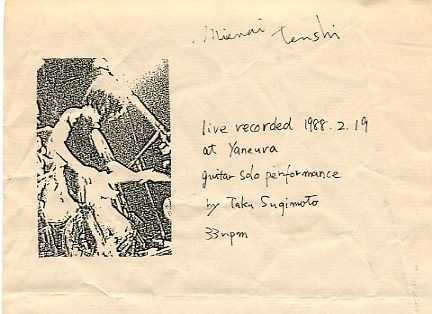 Mienai tenshi
live recorded 1988.2.19
at Yaneura
guitar solo performance
by Taku Sugimoto
33rpm